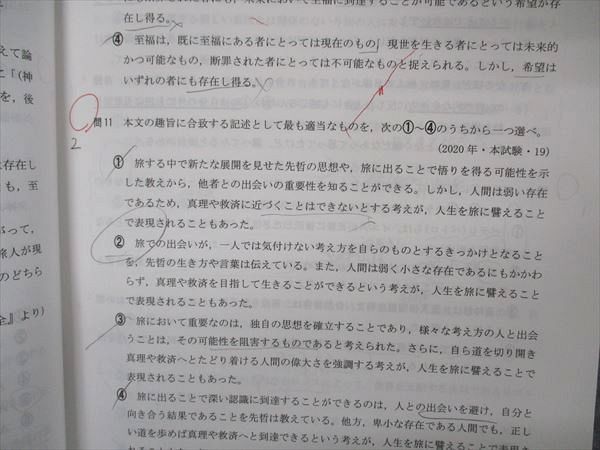 在し得る。
④ 至福は、既に至福にある者にとっては現在のもの、現世を生きる者にとっては未来的
かつ可能なもの、断罪された者にとっては不可能なものと捉えられる。しかし、希望は
いずれの者にも存在し得る。
えて論
こ「(神
を、後
問11 本文の趣旨に合致する記述として最も適当なものを、次の①〜④のうちから一つ選べ。
2
(2020年・本試験・19)
① 旅する中で新たな展開を見せた先哲の思想や、旅に出ることで悟りを得る可能性を示
した教えから、他者との出会いの重要性を知ることができる。しかし、人間は弱い存在
であるため、真理や救済に近づくことはできないとする考えが、人生を旅に譬えること
で表現されることもあった。
② 旅での出会いが、一人では気付けない考え方を自らのものとするきっかけとなること
を、先哲の生き方や言葉は伝えている。また、人間は弱く小さな存在であるにもかかわ
らず、真理や救済を目指して生きることができるという考えが、人生を旅に譬えること
で表現されることもあった。
③ 旅において重要なのは、独自の思想を確立することであり、様々な考え方の人と出会
うことは、その可能性を阻害するものであると考えられた。さらに、自ら道を切り開き
真理や救済へとたどり着ける人間の偉大さを強調する考えが、人生を旅に譬えることで
表現されることもあった。
④ 旅に出ることで深い認識に到達することができるのは、人との出会いを避け、自分と
向き合う結果であることを先哲は教えている。他方、卑小な存在である人間でも、正し
い道を歩めば真理や救済へと到達できるという考えが、人生を旅に譬えることで表現さ
は存在し
も、至
がって、
旅人が現
のどちら
全』より)